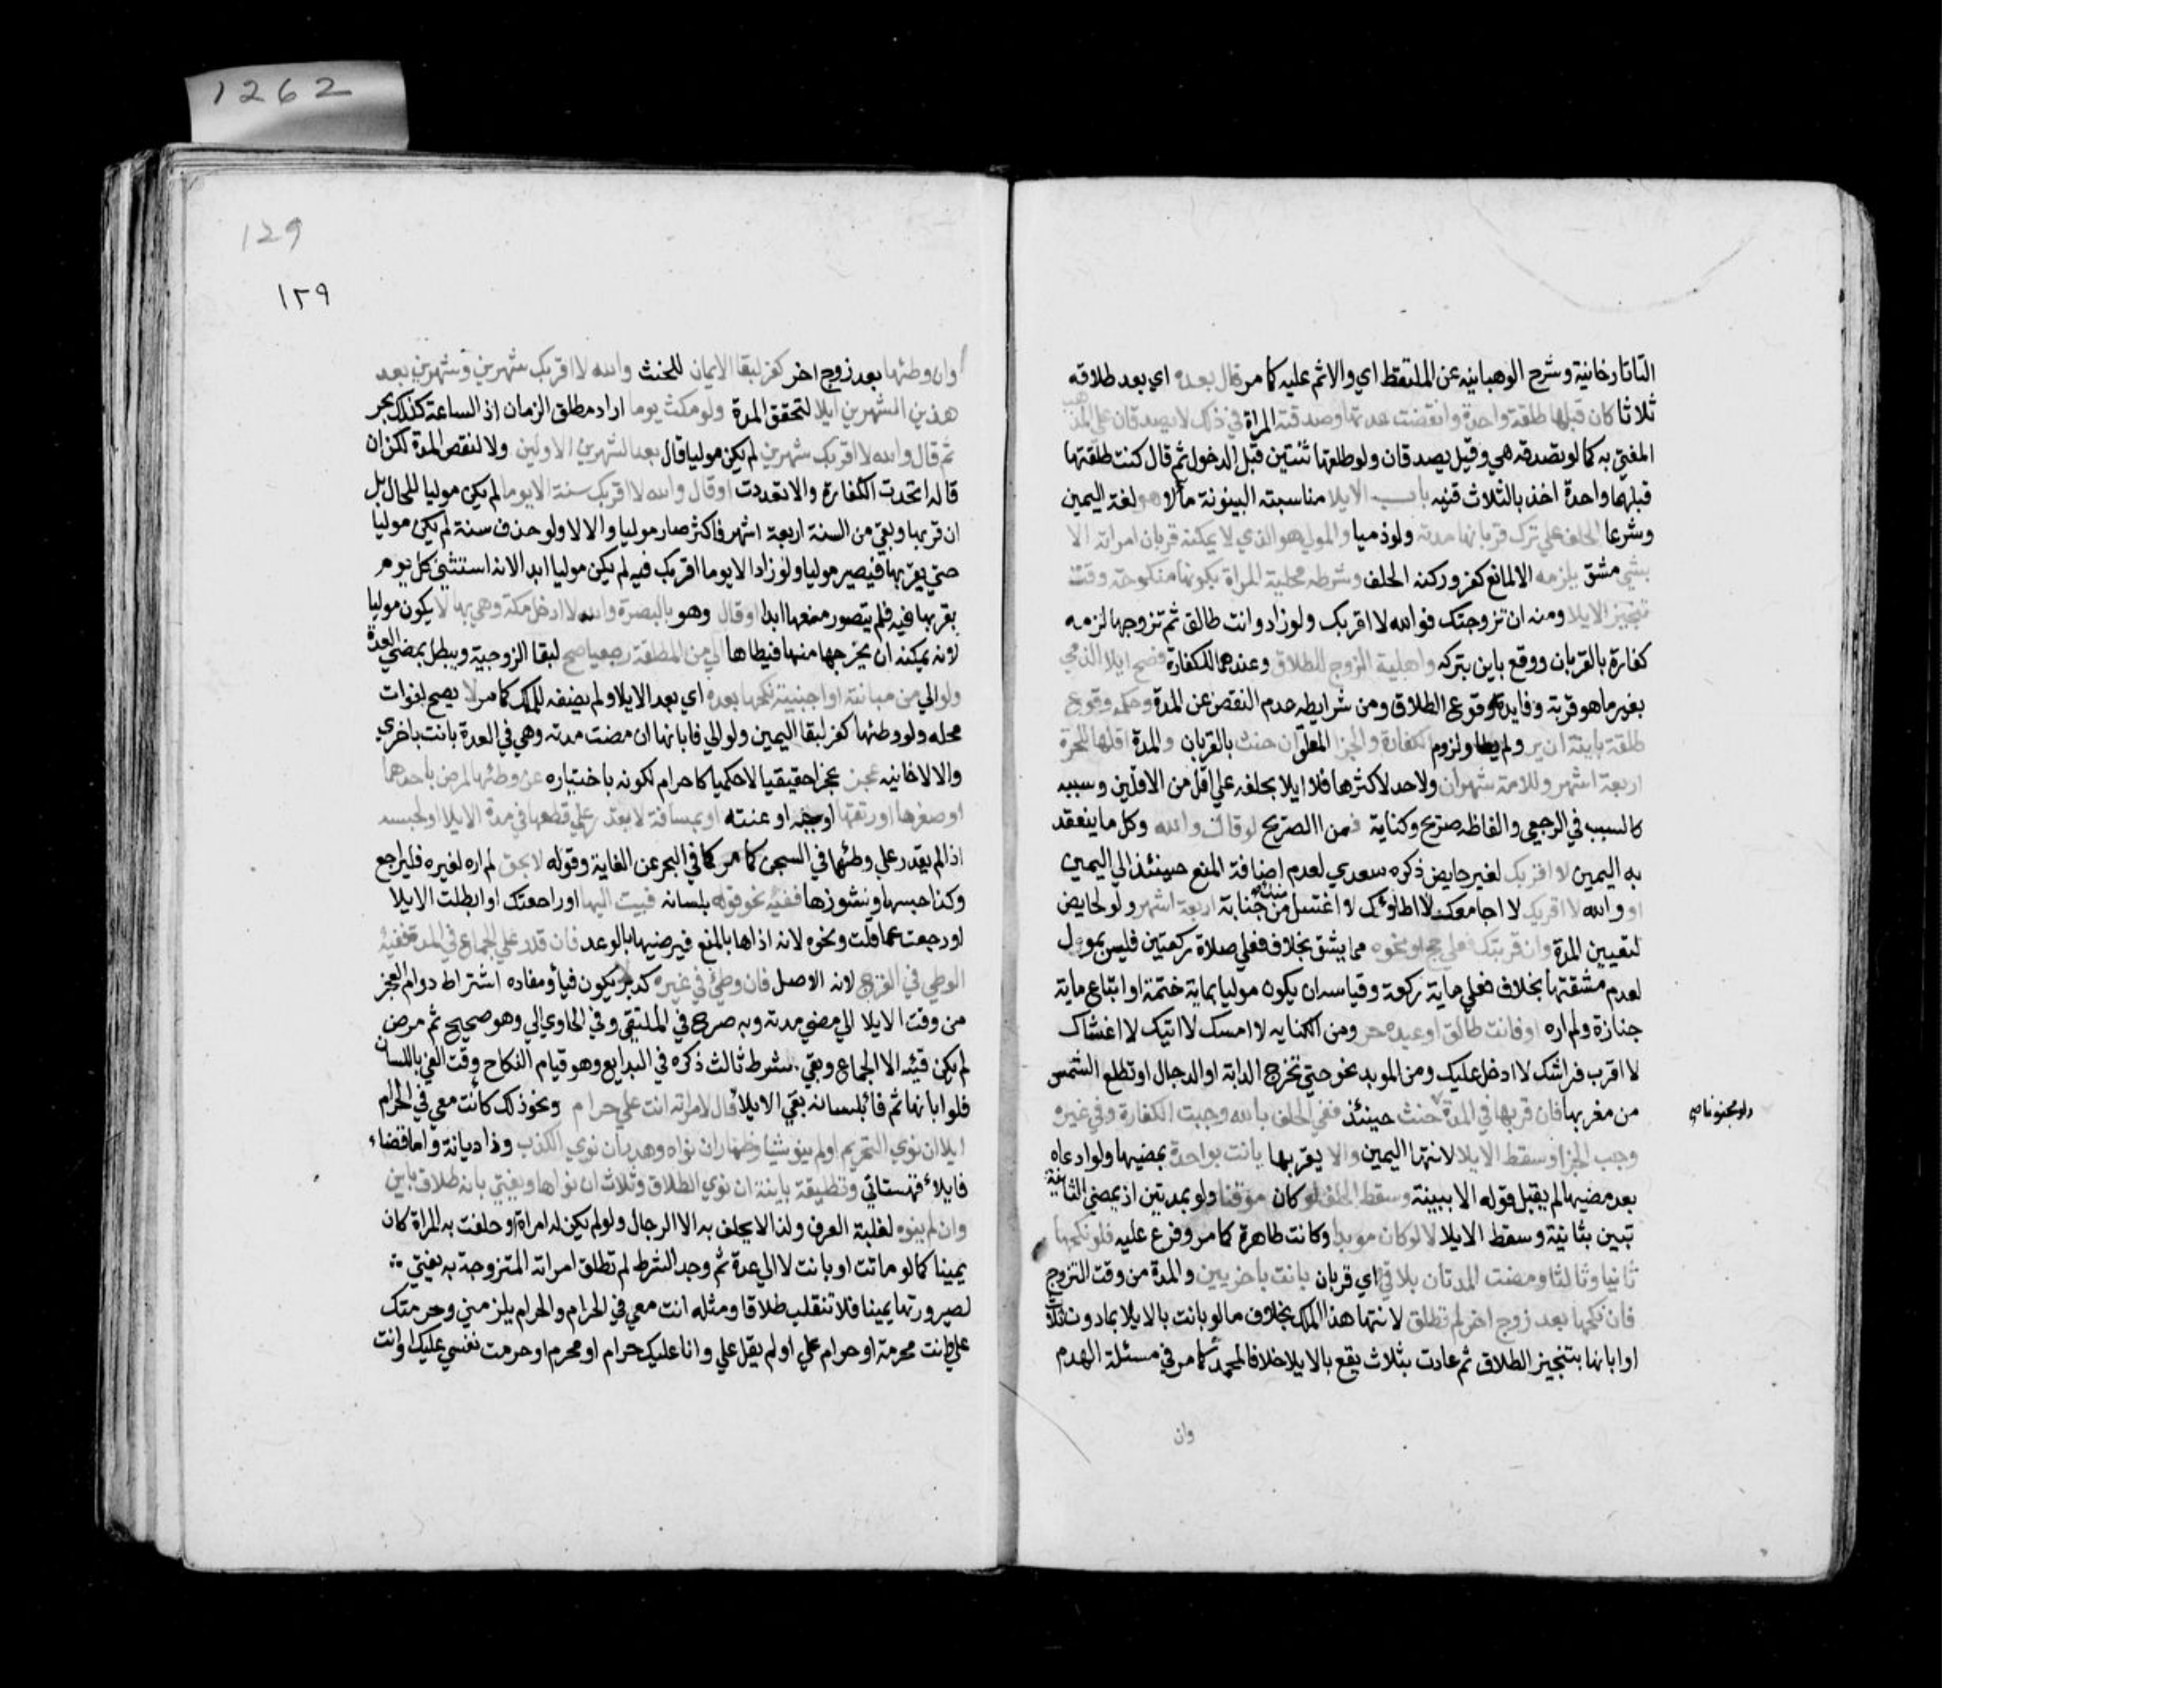 التاتارخانية وشرح الوهبانيه عن الملتقط اي والاثم عليه كما مر قال بعده اي بعد طلاقه
ثلاثا كان قبلها طلقة واحدة وانقضت عدتها وصدقته المراة في ذلك لا يصدقان علي المذهب
المفتي به كما لو تصدقه هي وقيل يصدقان ولو طلقها ثنتين قبل الدخول ثم قال كنت طلقتها
قبلهما واحدة اخذ بالثلاث قنيه باب الايلا مناسبته البينونة مالا هو لغة اليمين
وشرعا الحلف علي ترك قربانها مدته ولو ذميا والمولي هو الذي لا يمكنه قربان امراته الا
بشي مشق يلزمه الا لمانع كفر وركنه الحلف وشرطه محلية المراة بكونها منكوحة وقت
تنجيز الايلا ومنه ان تزوجتك فوالله لا اقربك ولو زاد وانت طالق ثم تزوجها لزمه
كفارة بالقربان ووقع باين بتركه واهلية الزوج للطلاق وعندهما للكفارة فصح ايلا الذمي
بغير ما هو قربة وفايدته وقوع الطلاق ومن شرايطه عدم النقص عن المدة وحكمه وقوع
طلقة باينة ان بر ولم يطا ولزوم الكفارة والجزا المعلق ان حنث بالقربان والمدة اقلها للحرة
اربعة اشهر وللامة شهران ولاحد لاكثرها فلا ايلا بحلفه علي اقل من الاقلين وسببه
كالسبب في الرجعي والفاظه صريح وكناية فمن الصريح لو قال والله وكل ما ينعقد
به اليمين لا اقربك لغير حايض ذكره سعدي لعدم اضافة المنع حينئذ الي اليمين
او والله لا اقربك لا اجامعك لا اطاؤك لا اغتسل منك من جنابة اربعة اشهر ولو لحايض
لتعيين المدة وان قربتك فعلي حج او نحوه مما يشق بخلاف فعلي صلاة ركعتين فليس بمول
لعدم مشقتها بخلاف فعلي ماية ركعة وقياسه ان يكون موليا بماية ختمة او اتباع ماية
جنازة ولم اره او فانت طالق او عبده حر ومن الكنايه لا امسك لا اتيك لا اغشاك
لا اقرب فراشك لا ادخل عليك ومن الموبد نحو حتي تخرج الدابة او الدجال او تطلع الشمس
من مغربها فان قربها في المدة حنث حينئذ ففي الحلف بالله وجبت الكفارة وفي غيره
ولو مجنونا صح
وجب الجزا وسقط الايلا لانتها اليمين والا يقربها بانت بواحدة بمضيها ولو ادعاه
بعد مضيها لم يقبل قوله الا ببينة وسقط الحلف لو كان موقتا ولو بمدتين اذ بمضي الثانية
تبين بثانية وسقط الايلا لا لو كان موبدا وكانت طاهرة كما مر وفرع عليه فلو نكحها
ثانيا وثالثا ومضت المدتان بلا في اي قربان بانت باخريين والمدة من وقت التزوج
فان نكحها بعد زوج اخر لم تطلق لانتها هذا الملك بخلاف ما لو بانت بالايلا بما دون ثلاث
او ابانها بتنجيز الطلاق ثم عادت بثلاث يقع بالايلا خلافا لمحمد كما مر في مسئلة الهدم
وان
1262
129
١٢٩
وان وطئها بعد زوج اخر كفر لبقا الايمان للحنث والله لا اقربك شهرين وشهرين بعد
هذين الشهرين ايلا لتحقق المدة ولو مكث يوما اراد مطلق الزمان اذ الساعة كذلك بحر
ثم قال والله لا اقربك شهرين لم يكن موليا قال بعد الشهرين الاولين ولا لنقص المدة لكن ان
قاله اتحدت الكفارة والا تعددت او قال والله لا اقربك سنة الا يوما لم يكن موليا للحال بل
ان قربها وبقي من السنة اربعة اشهر فاكثر صار موليا والا لا ولو حذف سنة لم يكن موليا
حتي يقربها فيصير موليا ولو زاد الا يوما اقربك فيه لم يكن موليا ابدا لانه استثني كل يوم
يقربها فيه فلم يتصور منعها ابدا او قال وهو بالبصرة والله لا ادخل مكة وهي بها لا يكون موليا
لانه يمكنه ان يخرجها منها فيطاها الي من المطلقة رجعيا صح لبقا الزوجية ويبطل بمضي العدة
ولو الي من مبانته او اجنبية نكحها بعده اي بعد الايلا ولم يضفه للملك كما مر لا يصح لفوات
محله ولو وطئها كفر لبقا اليمين ولو الي فابانها ان مضت مدته وهي في العدة بانت باخري
والا لا خانيه عجز عجزا حقيقيا لا حكميا كاحرام لكونه باختياره عن وطئها لمرض باحدهما
او صغرها او رتقها او جبه او عنته او بمسافة لا يقدر علي قطعها في مدة الايلا او لحبسه
اذا لم يقدر علي وطئها في السجن كما مر كما في البحر عن الغاية وقوله لا بحق لم اره لغيره فليراجع
وكذا حبسها ونشوزها ففيئه نحو قوله بلسانه فيت اليها او راجعتك او ابطلت الايلا
او رجعت عما قلت ونحوه لانه اذاها بالمنع فيرضيها بالوعد فان قدر علي الجماع في المدة ففيئه
الوطي في الفرج لانه الاصل فان وطئ في غيره كدبر لا يكون فيأ ومفاده اشتراط دوام العجز
من وقت الايلا الي مضي مدته وبه صرح في الملتقي وفي الحاوي الي وهو صحيح ثم مرض
لم يكن فيئه الا الجماع وبقي شرط ثالث ذكره في البدايع وهو قيام النكاح وقت الفي باللسان
فلو ابانها ثم فاء بلسانه بقي الايلا قال لامراته انت علي حرام ونحو ذلك كانت معي في الحرام
ايلا ان نوي التحريم او لم ينو شيا وظهار ان نواه وهدر ان نوي الكذب وذا ديانة واما قضاء
فايلاء قهستاني وتطليقة باينة ان نوي الطلاق وثلاث ان نواها ويفتي بانه طلاق باين
وان لم ينوه لغلبة العرف ولذا لا يحلف به الا الرجال ولو لم يكن له امراة او حلفت به المراة كان
يمينا كما لو ماتت او بانت لا الي عدة ثم وجد الشرط لم تطلق امراته المتزوجة به يفتي
لصيرورتها يمينا فلا تنقلب طلاقا ومثله انت معي في الحرام والحرام يلزمني وحرمتك
علي وانت محرمة او حرام علي او لم يقل علي وانا عليك حرام او محرم او حرمت نفسي عليك او انت